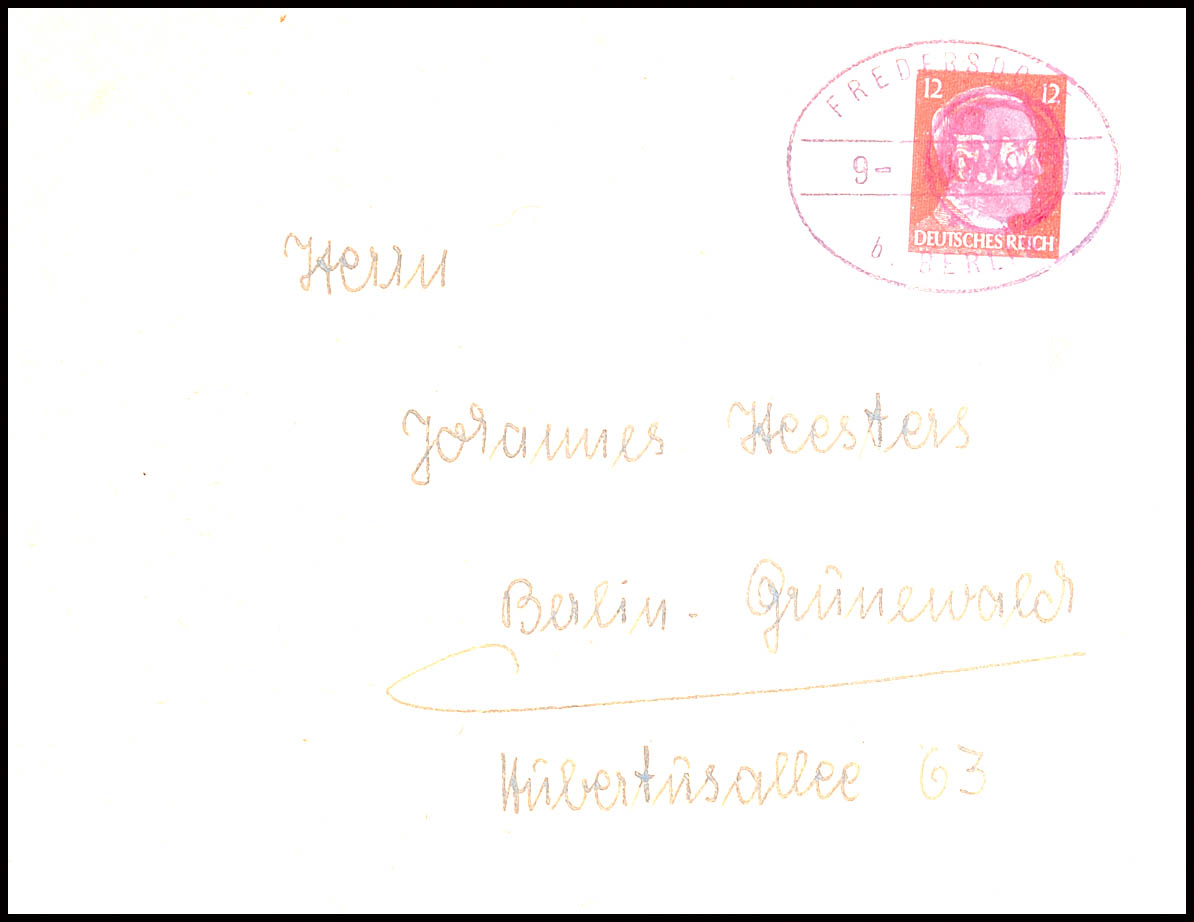 FREDERSDO
12 12
9-
DEUTSCHES REICH
b. BERLI
Herrn
Johannes Heesters
Berlin-Grünewald
Hübertüsallee 63